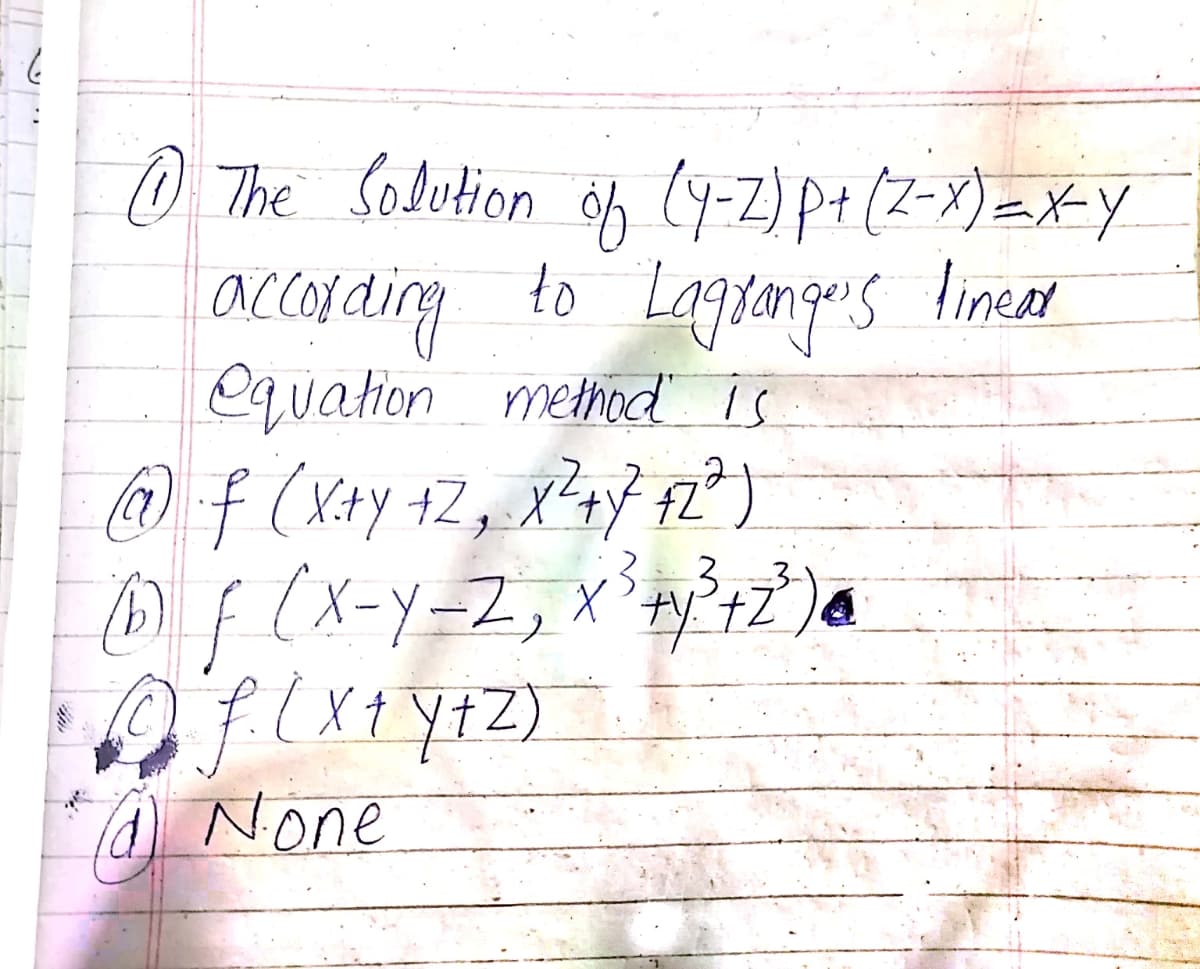 ① The Solution of (y-z) p+ (z-x) = x-y
according to Lagrange's linear
equation method is
ⓐ f (x+y+z, x²+y²+z²)
ⓑ f (x-y-z, x³+y³+z³)
ⓒ f (x+y+z)
ⓓ None